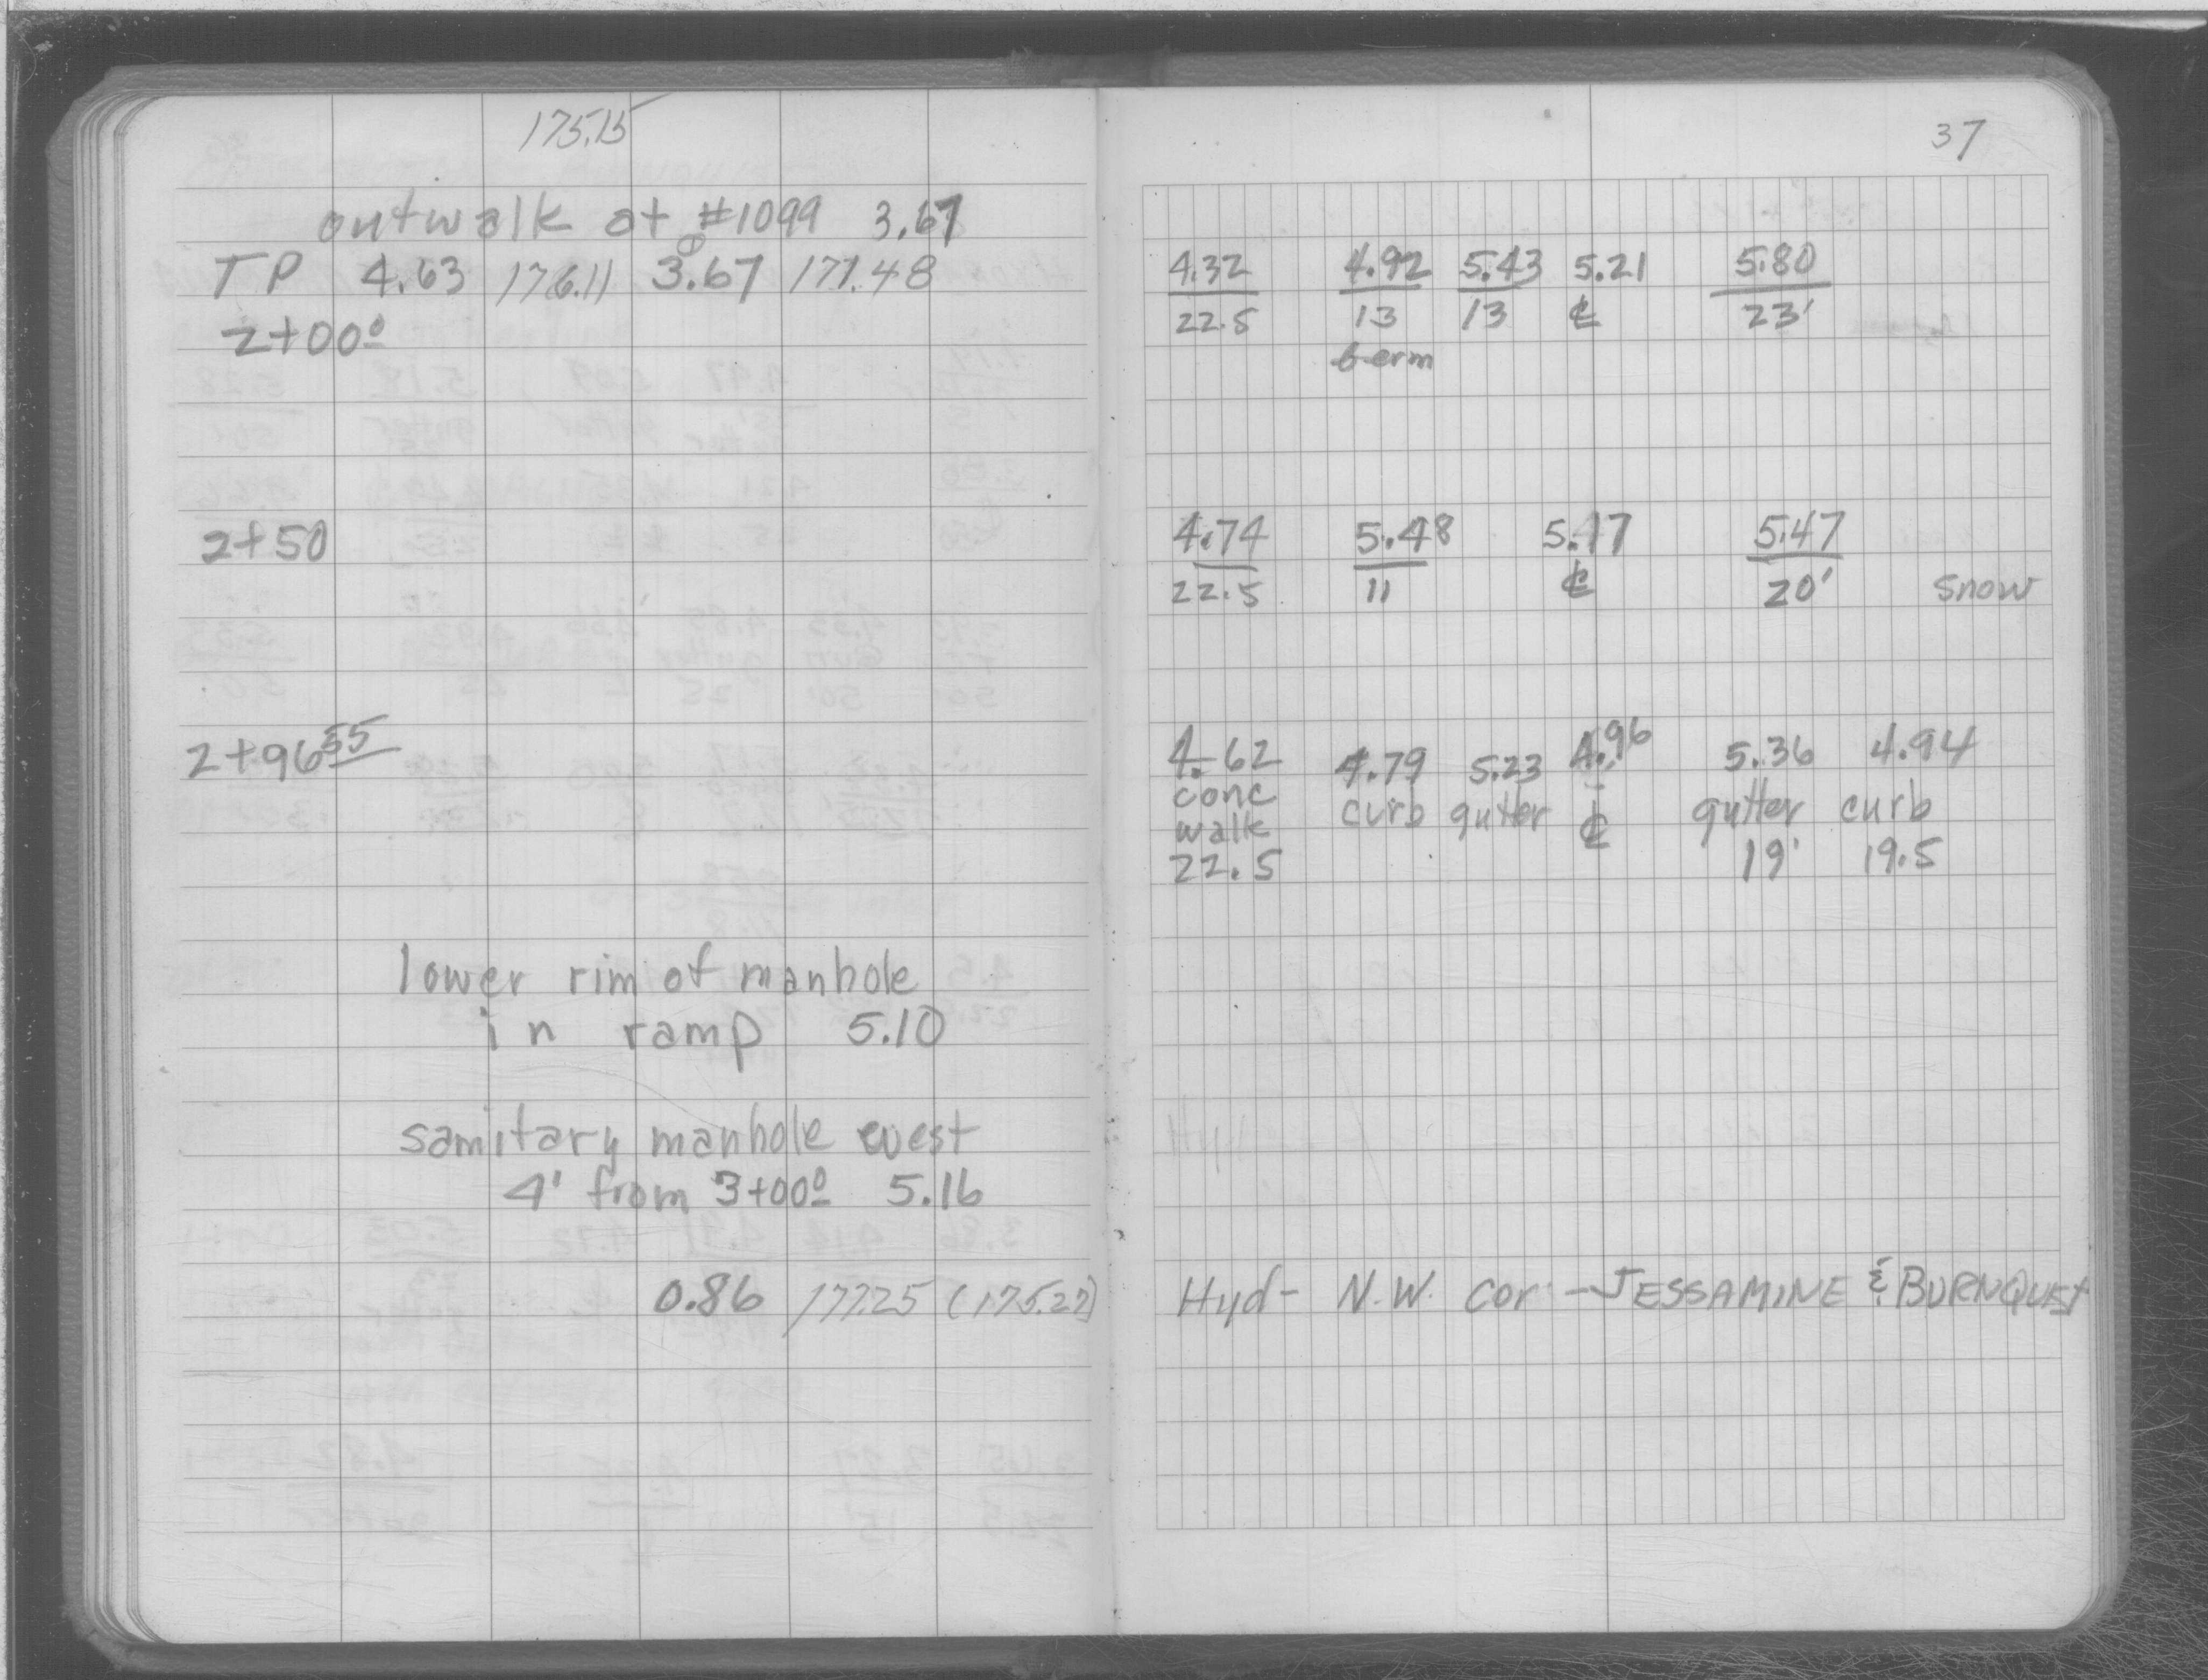 175.15
outwalk at #1099 3.67
TP 4.63 176.11 3.67 171.48
2+00º
2+50
2+96 55
lower rim of manhole
in ramp 5.10
samitary manhole west
4' from 3+00º 5.16
0.86 177.25 (175.27)
37
4.32 4.92 5.43 5.21 5.80
22.5 13 13 ℄ 23'
berm
4.74 5.48 5.17 5.47
22.5 11 ℄ 20' snow
4.62 4.79 5.23 4.96 5.36 4.94
conc curb gutter ℄ gutter curb
walk
22.5 19' 19.5
Hyd- N.W. Cor - JESSAMINE & BURNQUIST